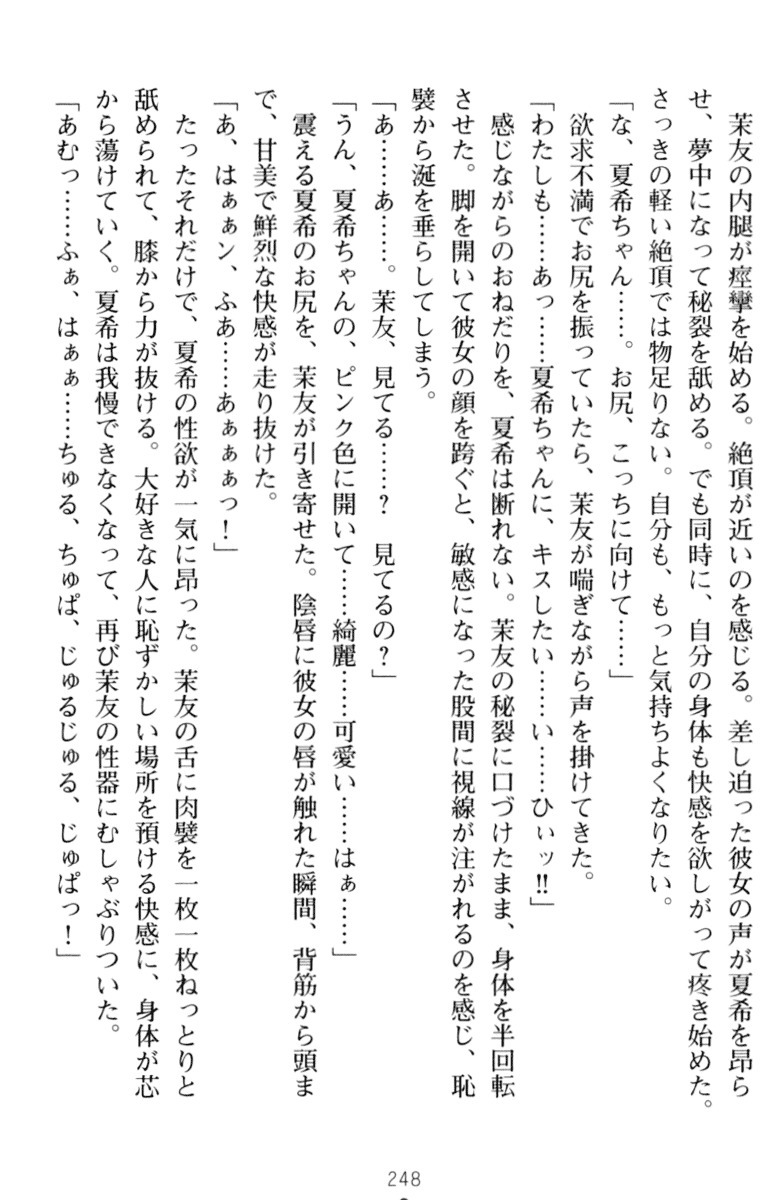 茉友の内腿が痙攣を始める。絶頂が近いのを感じる。差し迫った彼女の声が夏希を昂ら
せ、夢中になって秘裂を舐める。でも同時に、自分の身体も快感を欲しがって疼き始めた。
さっきの軽い絶頂では物足りない。自分も、もっと気持ちよくなりたい。
「な、夏希ちゃん……。お尻、こっちに向けて……」
欲求不満でお尻を振っていたら、茉友が喘ぎながら声を掛けてきた。
「わたしも……あっ……夏希ちゃんに、キスしたい……い……ひぃッ!!」
感じながらのおねだりを、夏希は断れない。茉友の秘裂に口づけたまま、身体を半回転
させた。脚を開いて彼女の顔を跨ぐと、敏感になった股間に視線が注がれるのを感じ、恥
襞から涎を垂らしてしまう。
「あ……あ……。茉友、見てる……？　見てるの？」
「うん、夏希ちゃんの、ピンク色に開いて……綺麗……可愛い……はぁ……」
震える夏希のお尻を、茉友が引き寄せた。陰唇に彼女の唇が触れた瞬間、背筋から頭ま
で、甘美で鮮烈な快感が走り抜けた。
「あ、はぁぁン、ふあ……あぁぁぁっ！」
たったそれだけで、夏希の性欲が一気に昂った。茉友の舌に肉襞を一枚一枚ねっとりと
舐められて、膝から力が抜ける。大好きな人に恥ずかしい場所を預ける快感に、身体が芯
から蕩けていく。夏希は我慢できなくなって、再び茉友の性器にむしゃぶりついた。
「あむっ……ふぁ、はぁぁ……ちゅる、ちゅぱ、じゅるじゅる、じゅぱっ！」
248